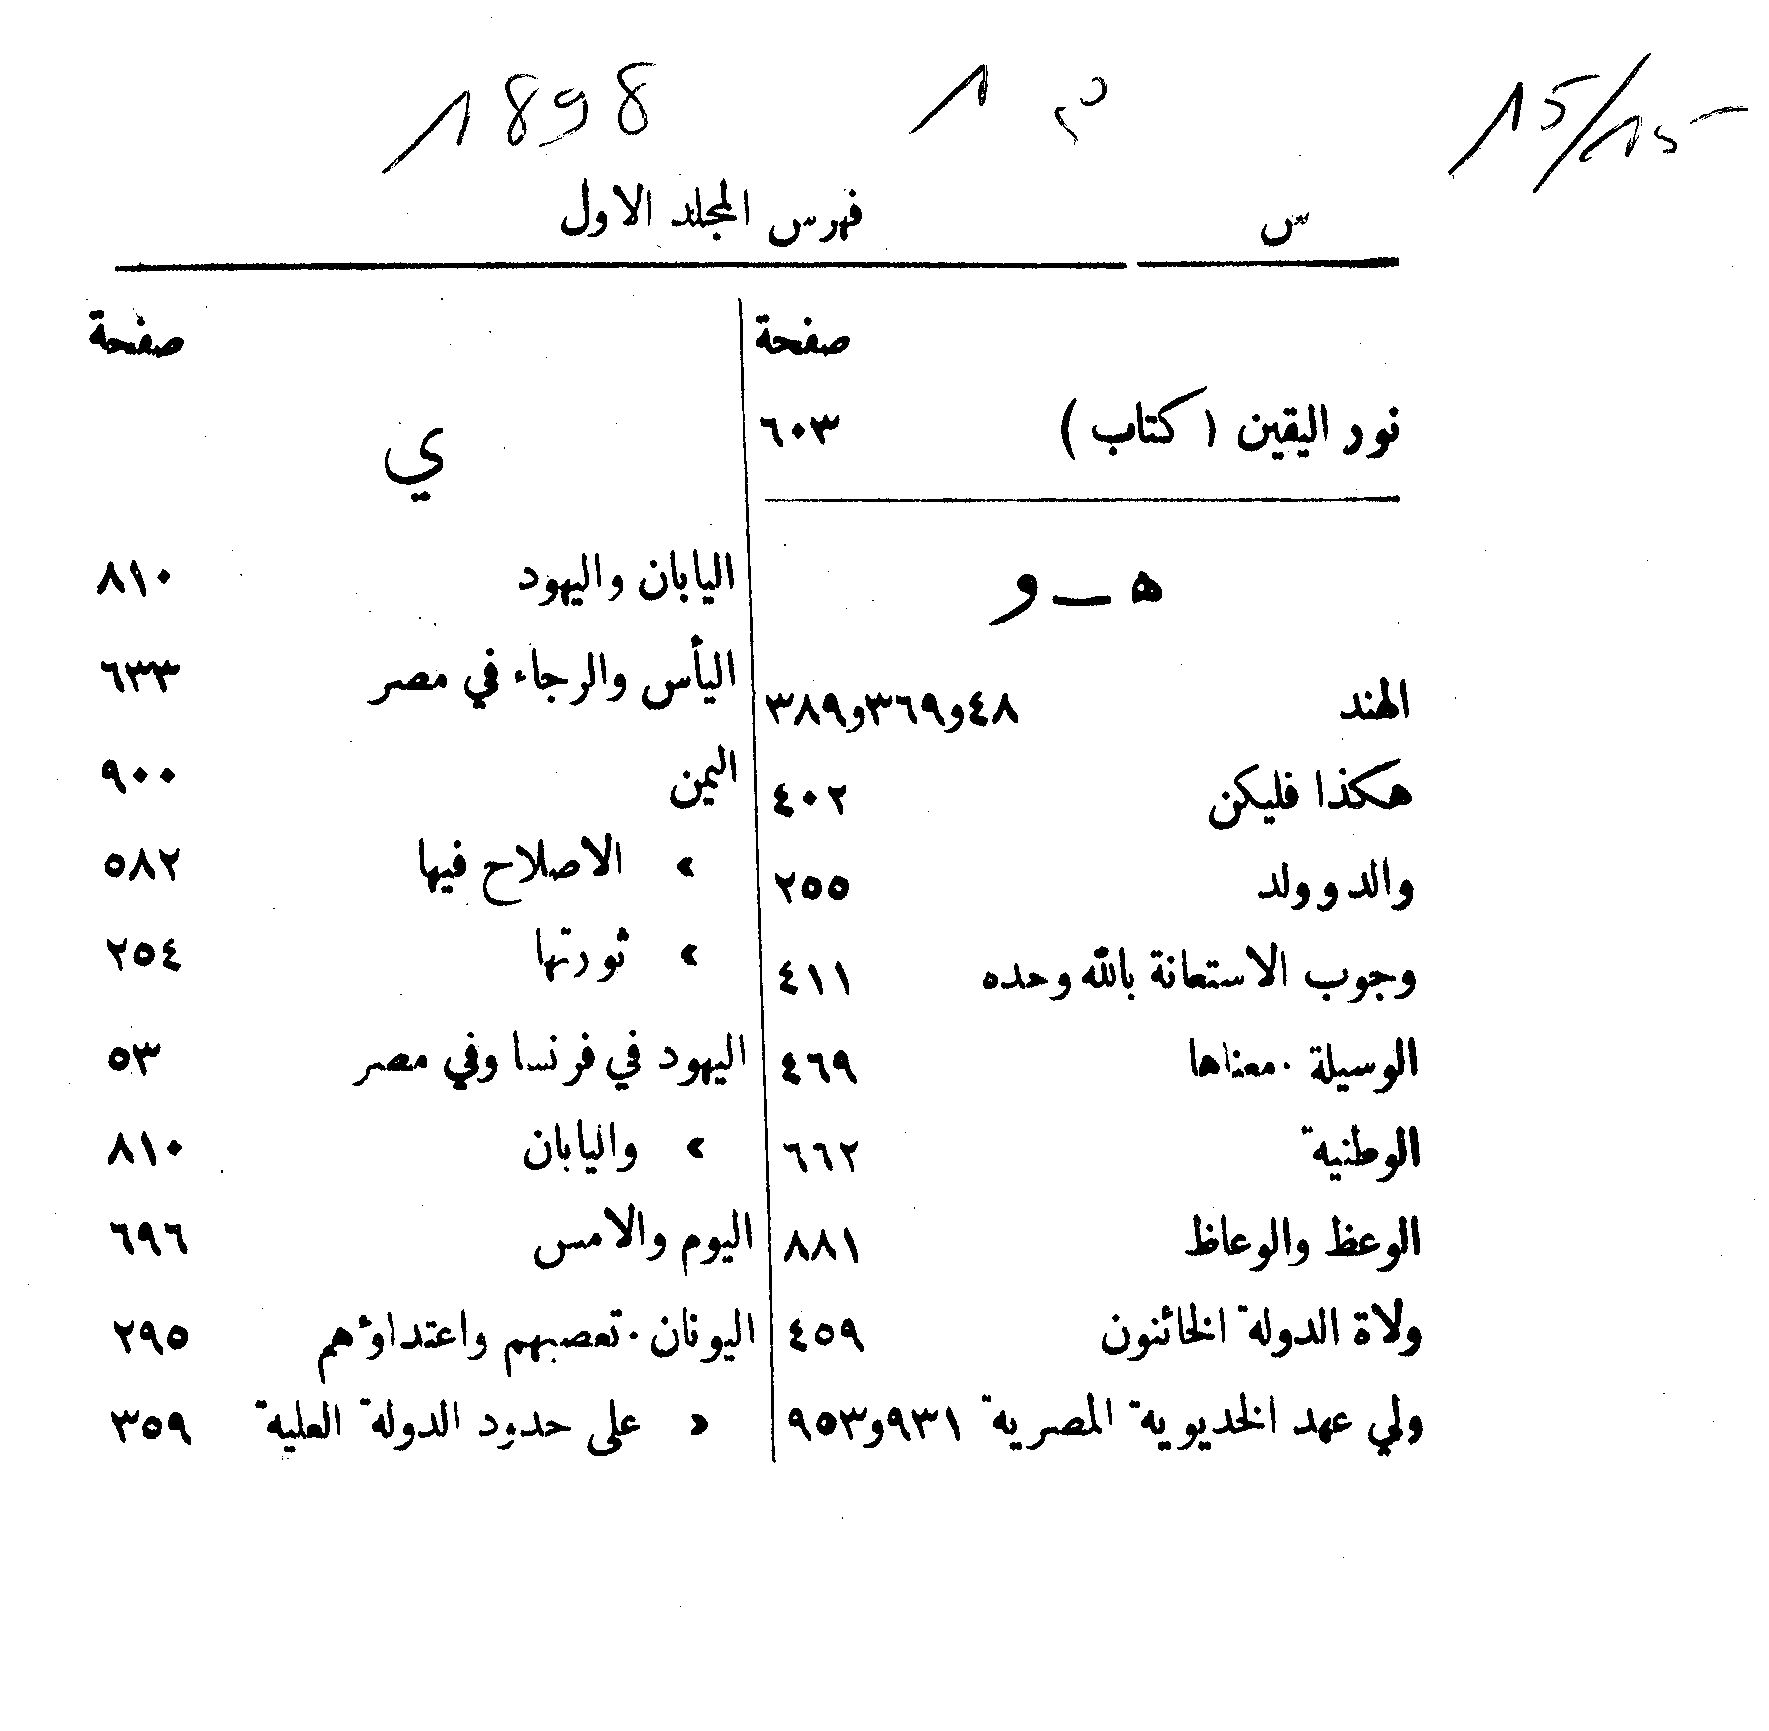 15/15 م 1 1898
س فهرس المجلد الاول
صفحة
نور اليقين ( كتاب ) ٦٠٣
ه — و
الهند ٤٨و٣٦٩و٣٨٩
هكذا فليكن ٤٠٢
والد وولد ٢٥٥
وجوب الاستعانة بالله وحده ٤١١
الوسيلة . معناها ٤٦٩
الوطنية ٦٦٢
الوعظ والوعاظ ٨٨١
ولاة الدولة الخائنون ٤٥٩
ولي عهد الخديوية المصرية ٩٣١و٩٥٣
صفحة
ي
اليابان واليهود ٨١٠
اليأس والرجاء في مصر ٦٣٣
اليمن ٩٠٠
» الاصلاح فيها ٥٨٢
» ثورتها ٢٥٤
اليهود في فرنسا وفي مصر ٥٣
» واليابان ٨١٠
اليوم والامس ٦٩٦
اليونان . تعصبهم واعتداؤهم ٢٩٥
» على حدود الدولة العلية ٣٥٩